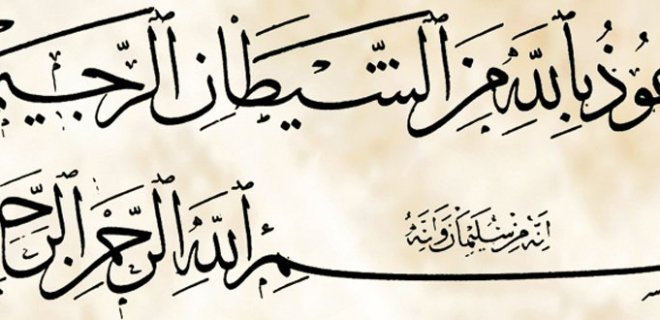 عُوذُ بِاللّٰهِ مِنَ الشَّيْطَانِ الرَّجِيم
اِنَّهُ مِنْ سُلَيْمَانَ وَاِنَّهُ
سمِ اللّٰهِ الرَّحْمٰنِ الرَّح